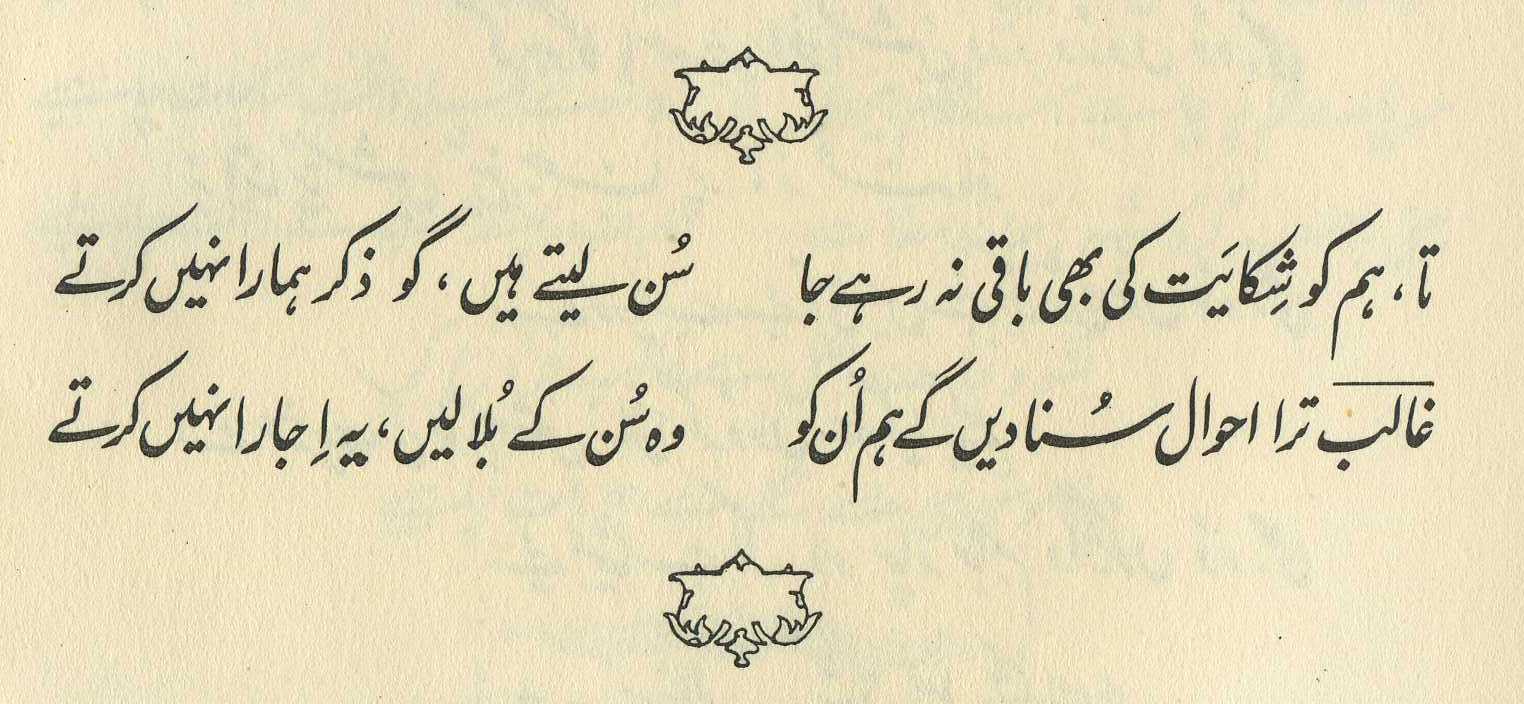 تا، ہم کو شِکایَت کی بھی باقی نہ رہے جا سُن لیتے ہیں، گو ذکر ہمارا نہیں کرتے
غالب ترا احوال سُنا دیں گے ہم اُن کو وہ سُن کے بُلا لیں، یہ اِجارا نہیں کرتے